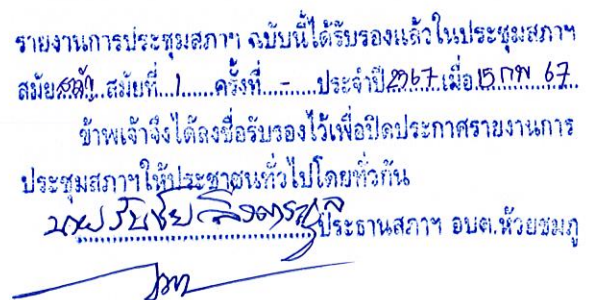 รายงานการประชุมสภาฯ ฉบับนี้ได้รับรองแล้วในประชุมสภาฯ
สมัย..สามัญ..สมัยที่..1..ครั้งที่..-..ประจำปี 2567 เมื่อ 15 กพ 67
ข้าพเจ้าจึงได้ลงชื่อรับรองไว้เพื่อปิดประกาศรายงานการ
ประชุมสภาฯให้ประชาชนทั่วไปโดยทั่วกัน
นาย ประธานสภาฯ อบต.ห้วยชมภู